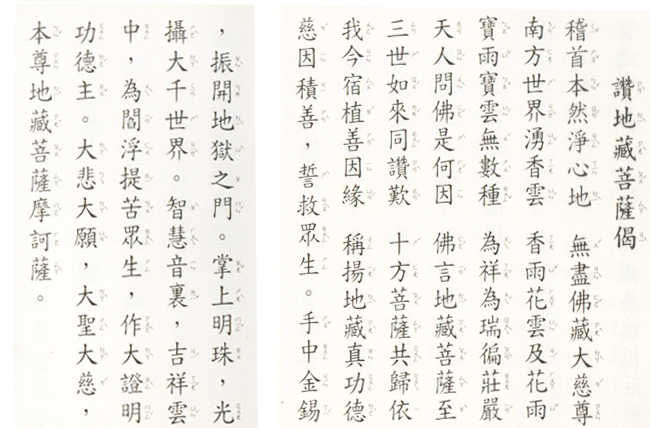 讚地藏菩薩偈
稽首本然淨心地　無盡佛藏大慈尊
南方世界湧香雲　香雨花雲及花雨
寶雨寶雲無數種　為祥為瑞徧莊嚴
天人問佛是何因　佛言地藏菩薩至
三世如來同讚歎　十方菩薩共歸依
我今宿植善因緣　稱揚地藏真功德
慈因積善，誓救眾生。手中金錫
，振開地獄之門。掌上明珠，光
攝大千世界。智慧音裏，吉祥雲
中，為閻浮提苦眾生，作大證明
功德主。大悲大願，大聖大慈，
本尊地藏菩薩摩訶薩。